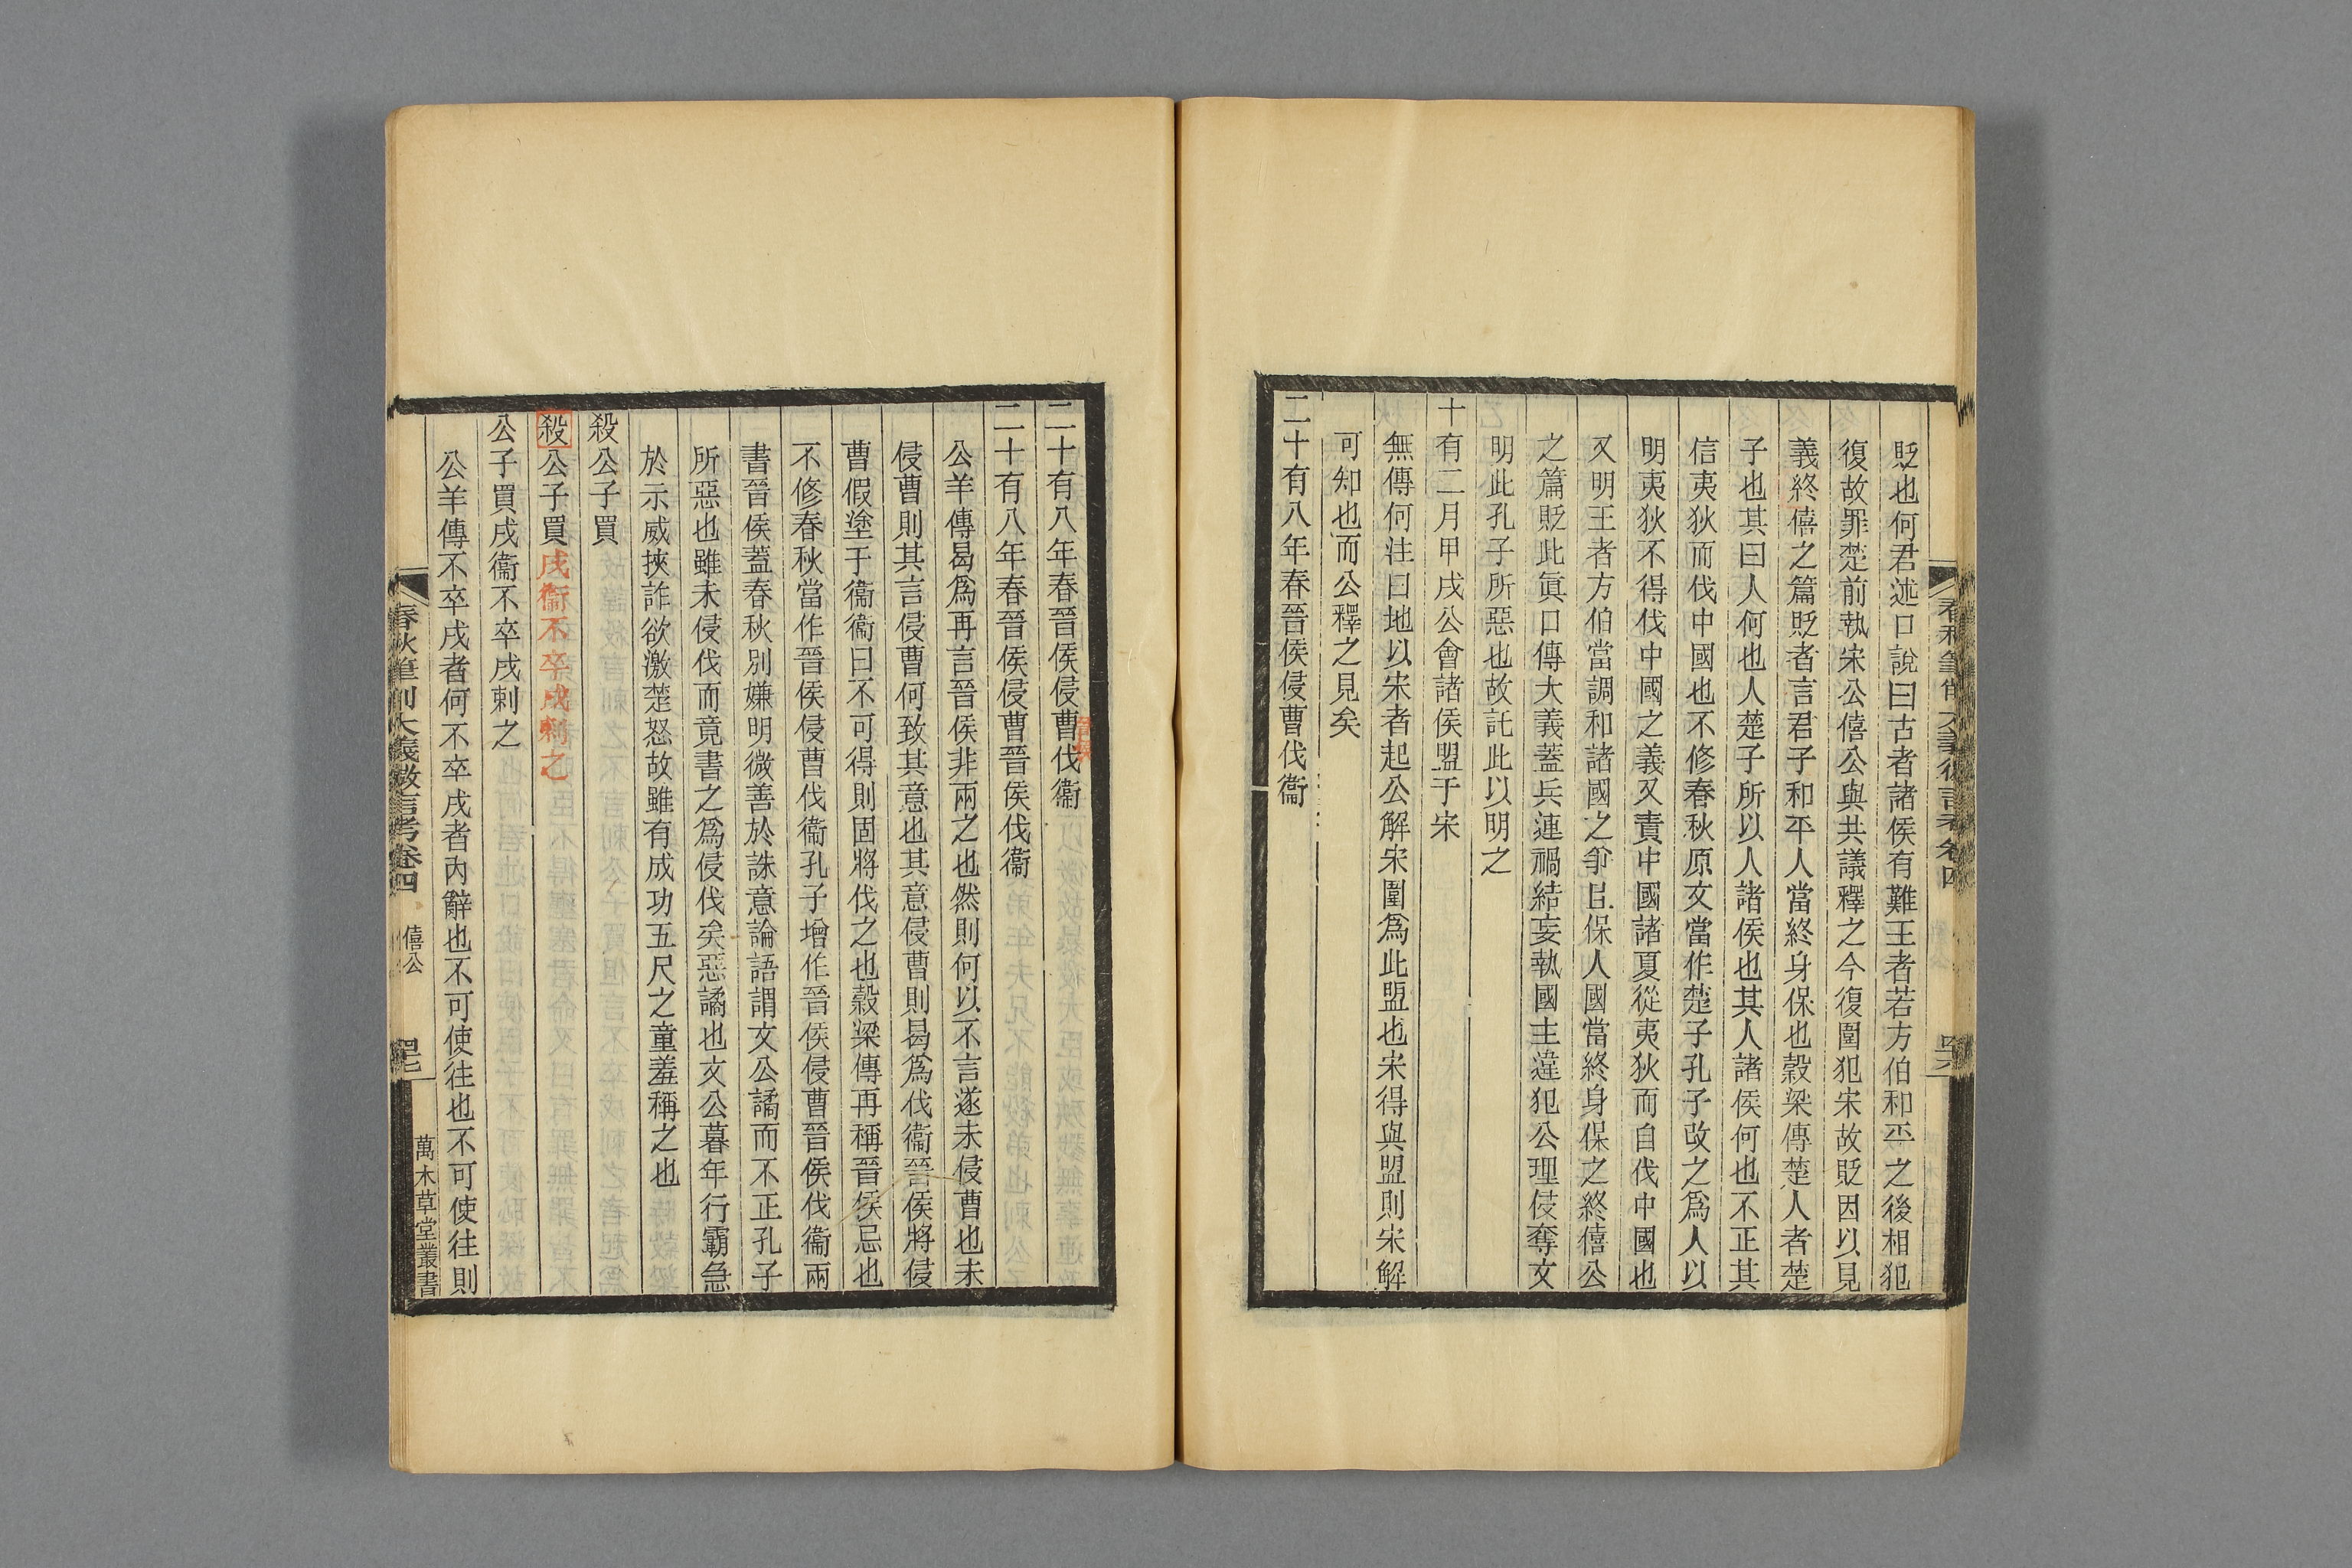 貶也何君述口說曰古者諸侯有難王者若方伯和平之後相犯
復故罪楚前執宋公僖公與共議釋之今復圍犯宋故貶因以見
義終僖之篇貶者言君子和平人當終身保也穀梁傳楚人者楚
子也其曰人何也人楚子所以人諸侯也其人諸侯何也不正其
信夷狄而伐中國也不修春秋原文當作楚子孔子改之爲人以
明夷狄不得伐中國之義又責中國諸夏從夷狄而自伐中國也
又明王者方伯當調和諸國之爭且保人國當終身保之終僖公
之篇貶此眞口傳大義蓋兵連禍結妄執國主違犯公理侵奪文
明此孔子所惡也故託此以明之
十有二月甲戌公會諸侯盟于宋
無傳何注曰地以宋者起公解宋圍爲此盟也宋得與盟則宋解
可知也而公釋之見矣
二十有八年春晉侯侵曹伐衞
二十有八年春晉侯侵曹伐衞
晉侯
二十有八年春晉侯侵曹晉侯伐衞
公羊傳曷爲再言晉侯非兩之也然則何以不言遂未侵曹也未
侵曹則其言侵曹何致其意也其意侵曹則曷爲伐衞晉侯將侵
曹假塗于衞衞曰不可得則固將伐之也穀梁傳再稱晉侯忌也
不修春秋當作晉侯侵曹伐衞孔子增作晉侯侵曹晉侯伐衞兩
書晉侯蓋春秋別嫌明微善於誅意論語謂文公譎而不正孔子
所惡也雖未侵伐而竟書之爲侵伐矣惡譎也文公暮年行霸急
於示威挾詐欲激楚怒故雖有成功五尺之童羞稱之也
殺公子買
殺公子買戍衞不卒戍刺之
公子買戍衞不卒戍刺之
公羊傳不卒戍者何不卒戍者內辭也不可使往也不可使往則
春秋筆削大義微言考卷四 僖公
萬木草堂叢書